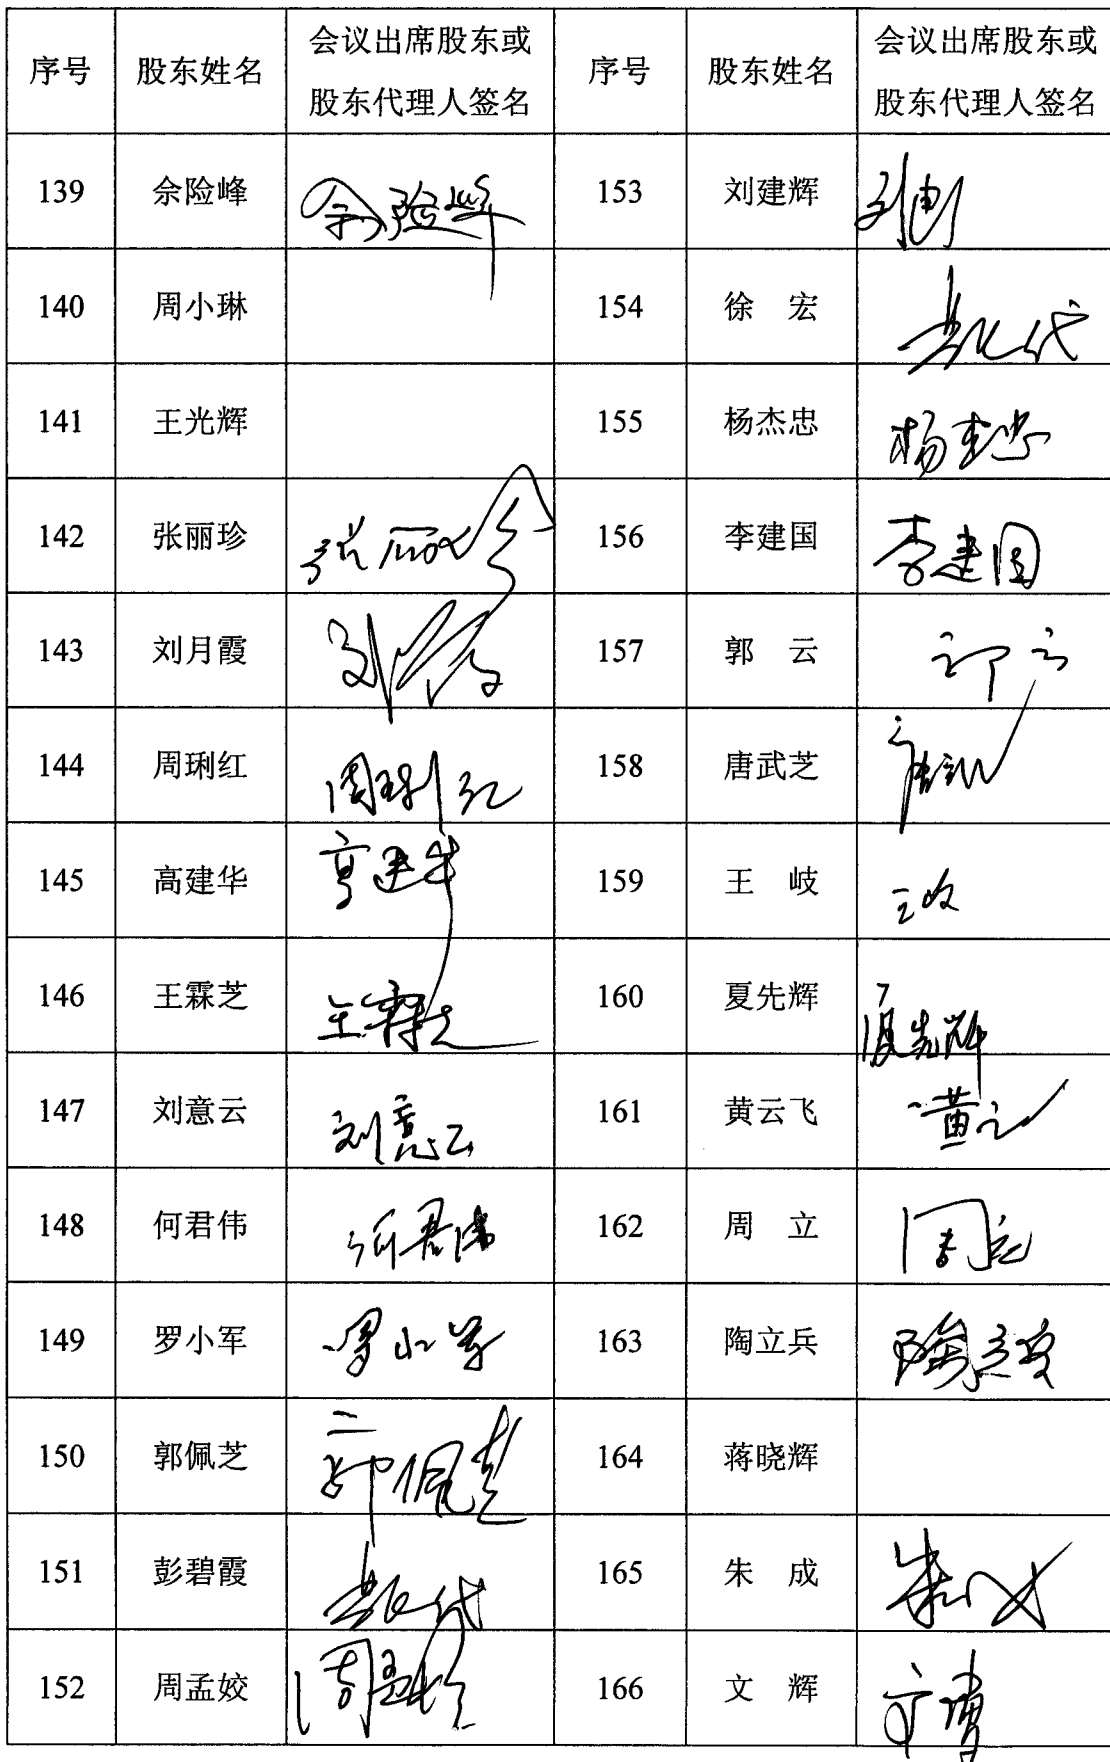 序号 股东姓名 会议出席股东或股东代理人签名 序号 股东姓名 会议出席股东或股东代理人签名
139 佘险峰 佘险峰 153 刘建辉
140 周小琳 154 徐 宏 代
141 王光辉 155 杨杰忠 杨杰忠
142 张丽珍 张丽珍 156 李建国 李建国
143 刘月霞 刘月霞 157 郭 云 郭云
144 周琍红 周琍红 158 唐武芝 唐武芝
145 高建华 高建华 159 王 岐 王岐
146 王霖芝 王霖芝 160 夏先辉 夏先辉
147 刘意云 刘意云 161 黄云飞 黄云飞
148 何君伟 何君伟 162 周 立 周立
149 罗小军 罗小军 163 陶立兵 陶立兵
150 郭佩芝 郭佩芝 164 蒋晓辉
151 彭碧霞 代 165 朱 成 朱成
152 周孟姣 周孟姣 166 文 辉 文辉